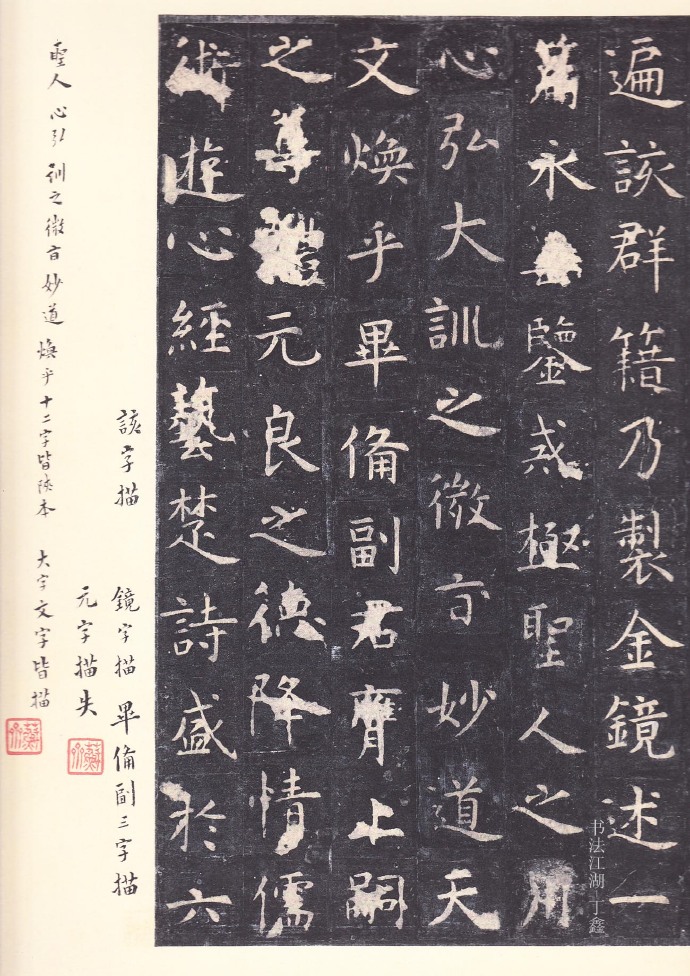 遍該群籍乃製金鏡述一
篇永垂鑒戒極聖人之用
心弘大訓之微旨妙道天
文煥乎畢備副君膺上嗣
之尊體元良之德降情儒
術遊心經藝楚詩盛於六
該字描
鏡字描 畢備副三字描
元字描失
聖人心弘訓之微旨妙道煥乎十二字皆陝本 大字文字皆描
书法江湖 丁鑫